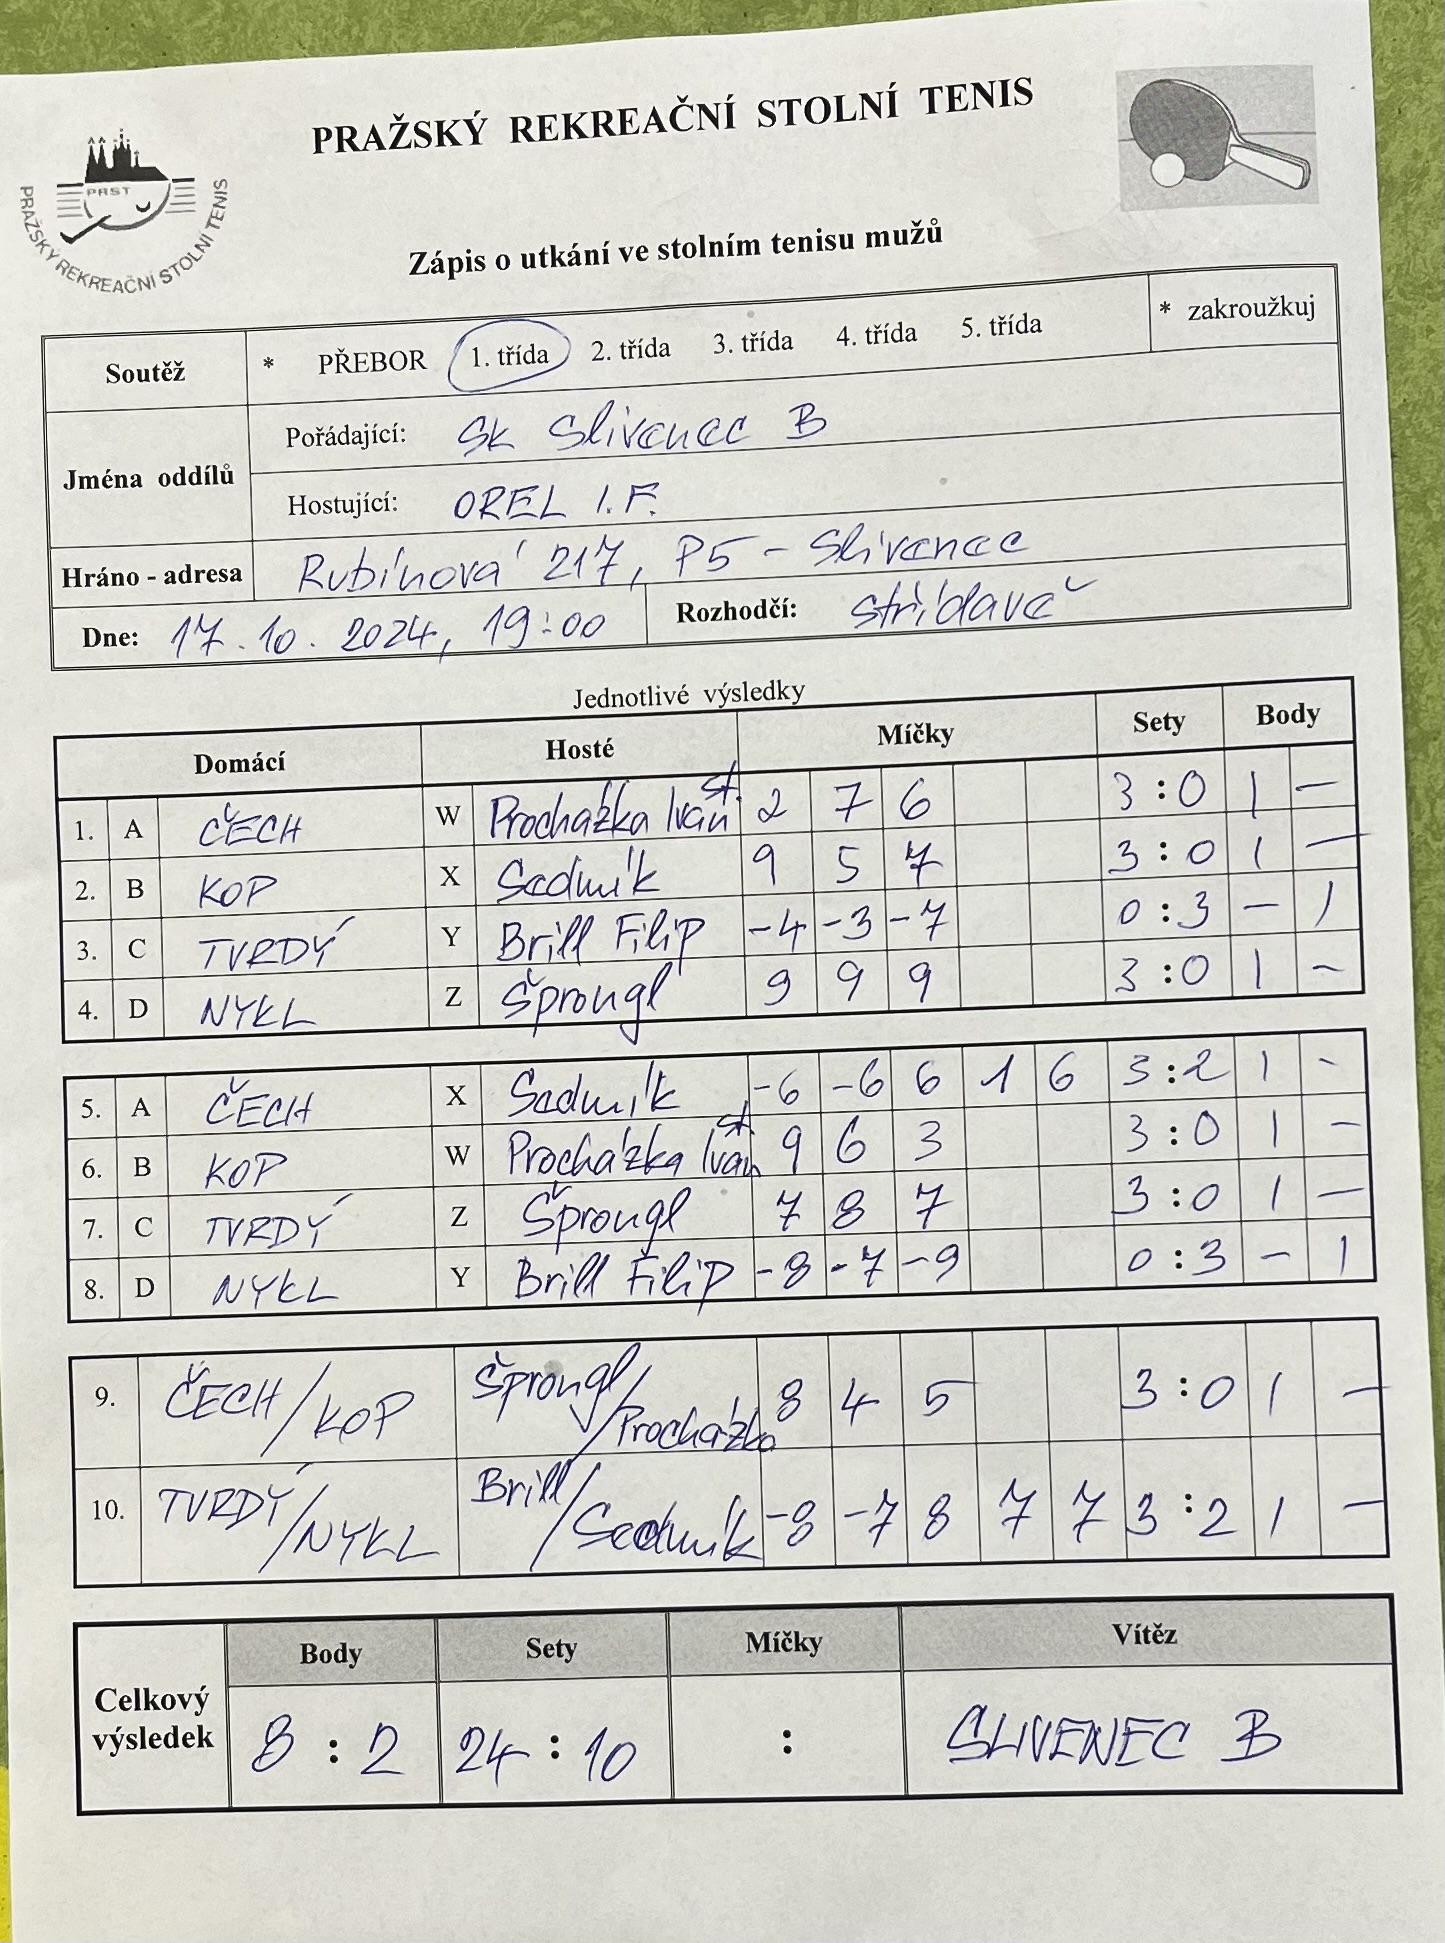 PRAŽSKÝ REKREAČNÍ STOLNÍ TENIS
PRST
PRAŽSKÝ REKREAČNÍ STOLNÍ TENIS
Zápis o utkání ve stolním tenisu mužů
Soutěž * PŘEBOR 1. třída 2. třída 3. třída 4. třída 5. třída * zakroužkuj
Jména oddílů
Pořádající: SK Slivenec B
Hostující: OREL I.F.
Hráno - adresa Rubínová 217, P5 - Slivenec
Dne: 17.10.2024, 19:00 Rozhodčí: střídavě
Jednotlivé výsledky
Domácí Hosté Míčky Sety Body
1. A ČECH W Procházka Ivan st. 2 7 6 3:0 1 -
2. B KOP X Sedmík 9 5 7 3:0 1 -
3. C TVRDÝ Y Brill Filip -4 -3 -7 0:3 - 1
4. D NYKL Z Šprongl 9 9 9 3:0 1 -
5. A ČECH X Sedmík -6 -6 6 1 6 3:2 1 -
6. B KOP W Procházka Ivan st. 9 6 3 3:0 1 -
7. C TVRDÝ Z Šprongl 7 8 7 3:0 1 -
8. D NYKL Y Brill Filip -8 -7 -9 0:3 - 1
9. ČECH/KOP Šprongl/Procházka 8 4 5 3:0 1 -
10. TVRDÝ/NYKL Brill/Sedmík -8 -7 8 7 7 3:2 1 -
Celkový výsledek
Body Sety Míčky Vítěz
8:2 24:10 : SLIVENEC B